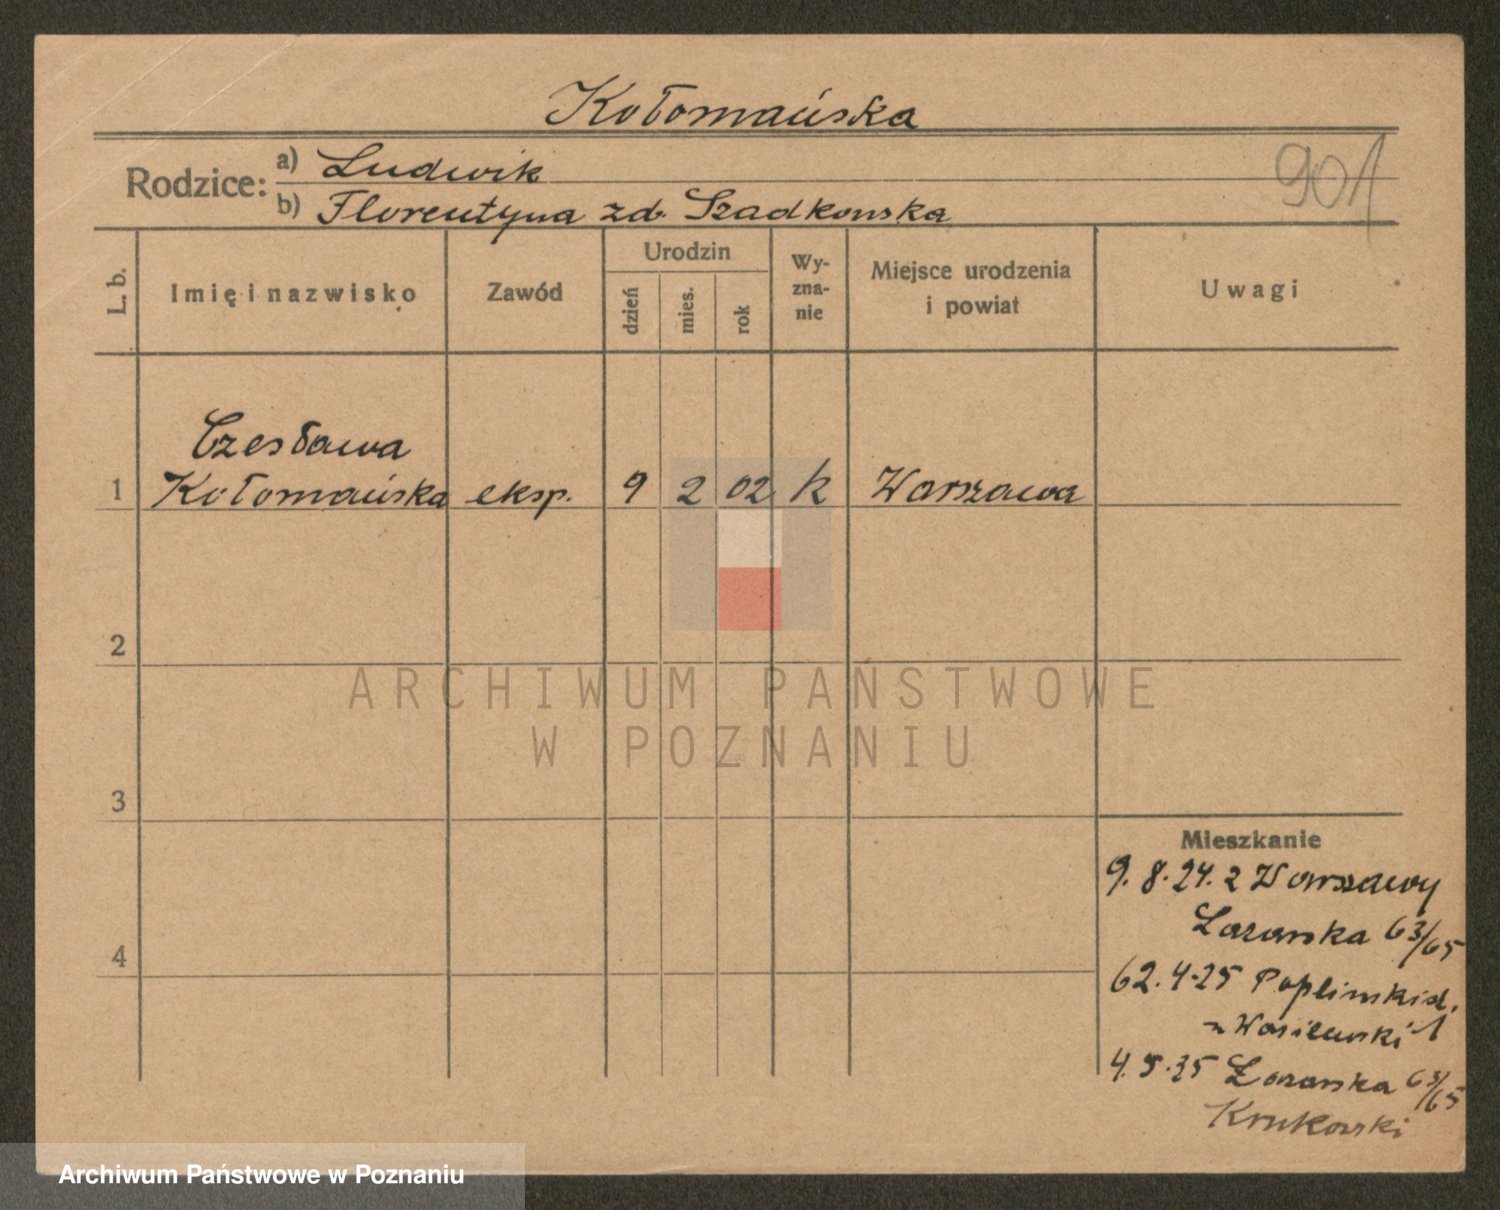 Kołomańska
901
Rodzice: a) Ludwik
b) Florentyna zd. Szadkowska
L. b.
Imię i nazwisko
Zawód
Urodzin
dzień
mies.
rok
Wy-
zna-
nie
Miejsce urodzenia
i powiat
Uwagi
Czesława
1 Kołomańska eksp. 9 2 02 k Warszawa
2
3
4
ARCHIWUM PAŃSTWOWE
W POZNANIU
Mieszkanie
9. 8. 24. z Warszawy
Łazarska 63/65
2. 4. 25
Wasilewski 1
4. 5. 25 Łazarska 63/65
Krukowski
Archiwum Państwowe w Poznaniu